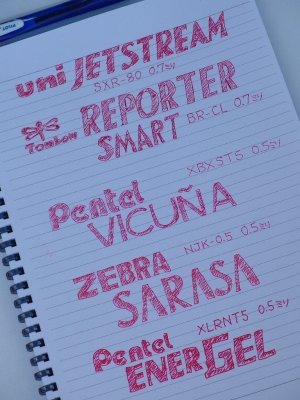 uni JETSTREAM
SXR-80 0.7ミリ
Tombow REPORTER
SMART BR-CL 0.7ミリ
XBXS7S 0.5ミリ
Pentel
VICUÑA
NJK-0.5 0.5ミリ
ZEBRA
SARASA
XLRNT5 0.5ミリ
Pentel
ENERGEL